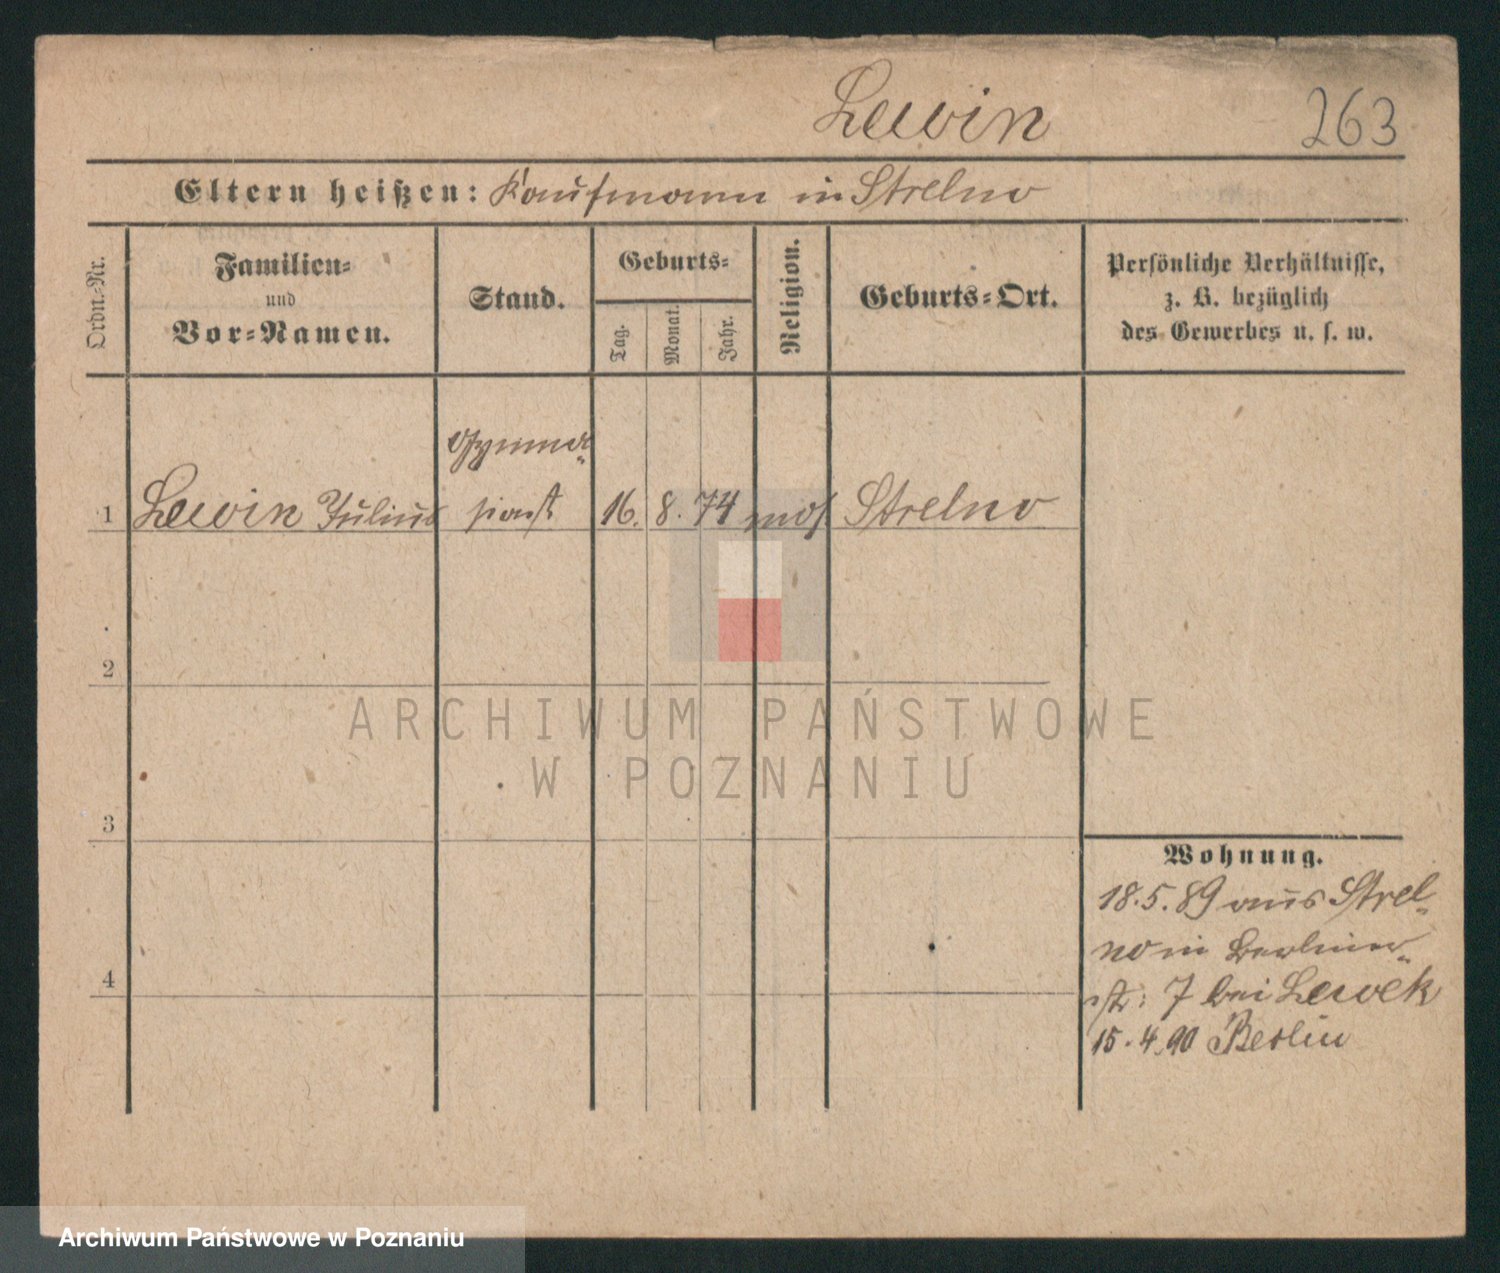 Lewin 263
Eltern heißen: Kaufmann in Strelno
Ordn.-Nr.
Familien-
und
Vor-Namen.
Stand.
Geburts-
Tag.
Monat.
Jahr.
Religion.
Geburts-Ort.
Persönliche Verhältnisse,
z. B. bezüglich
des Gewerbes u. s. w.
Gymna-
1 Lewin Julius siast 16. 8. 74 mos Strelno
2
ARCHIWUM PAŃSTWOWE
W POZNANIU
3
Wohnung.
18.5.89 aus Strel-
no in Berliner-
4
str: 7 bei Lewek
15.4.90 Berlin
Archiwum Państwowe w Poznaniu